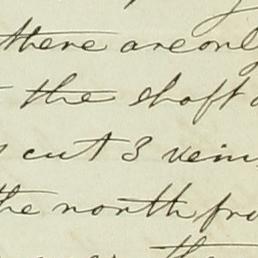 there are only
the shaft
cut 3 vein
the north fro
the